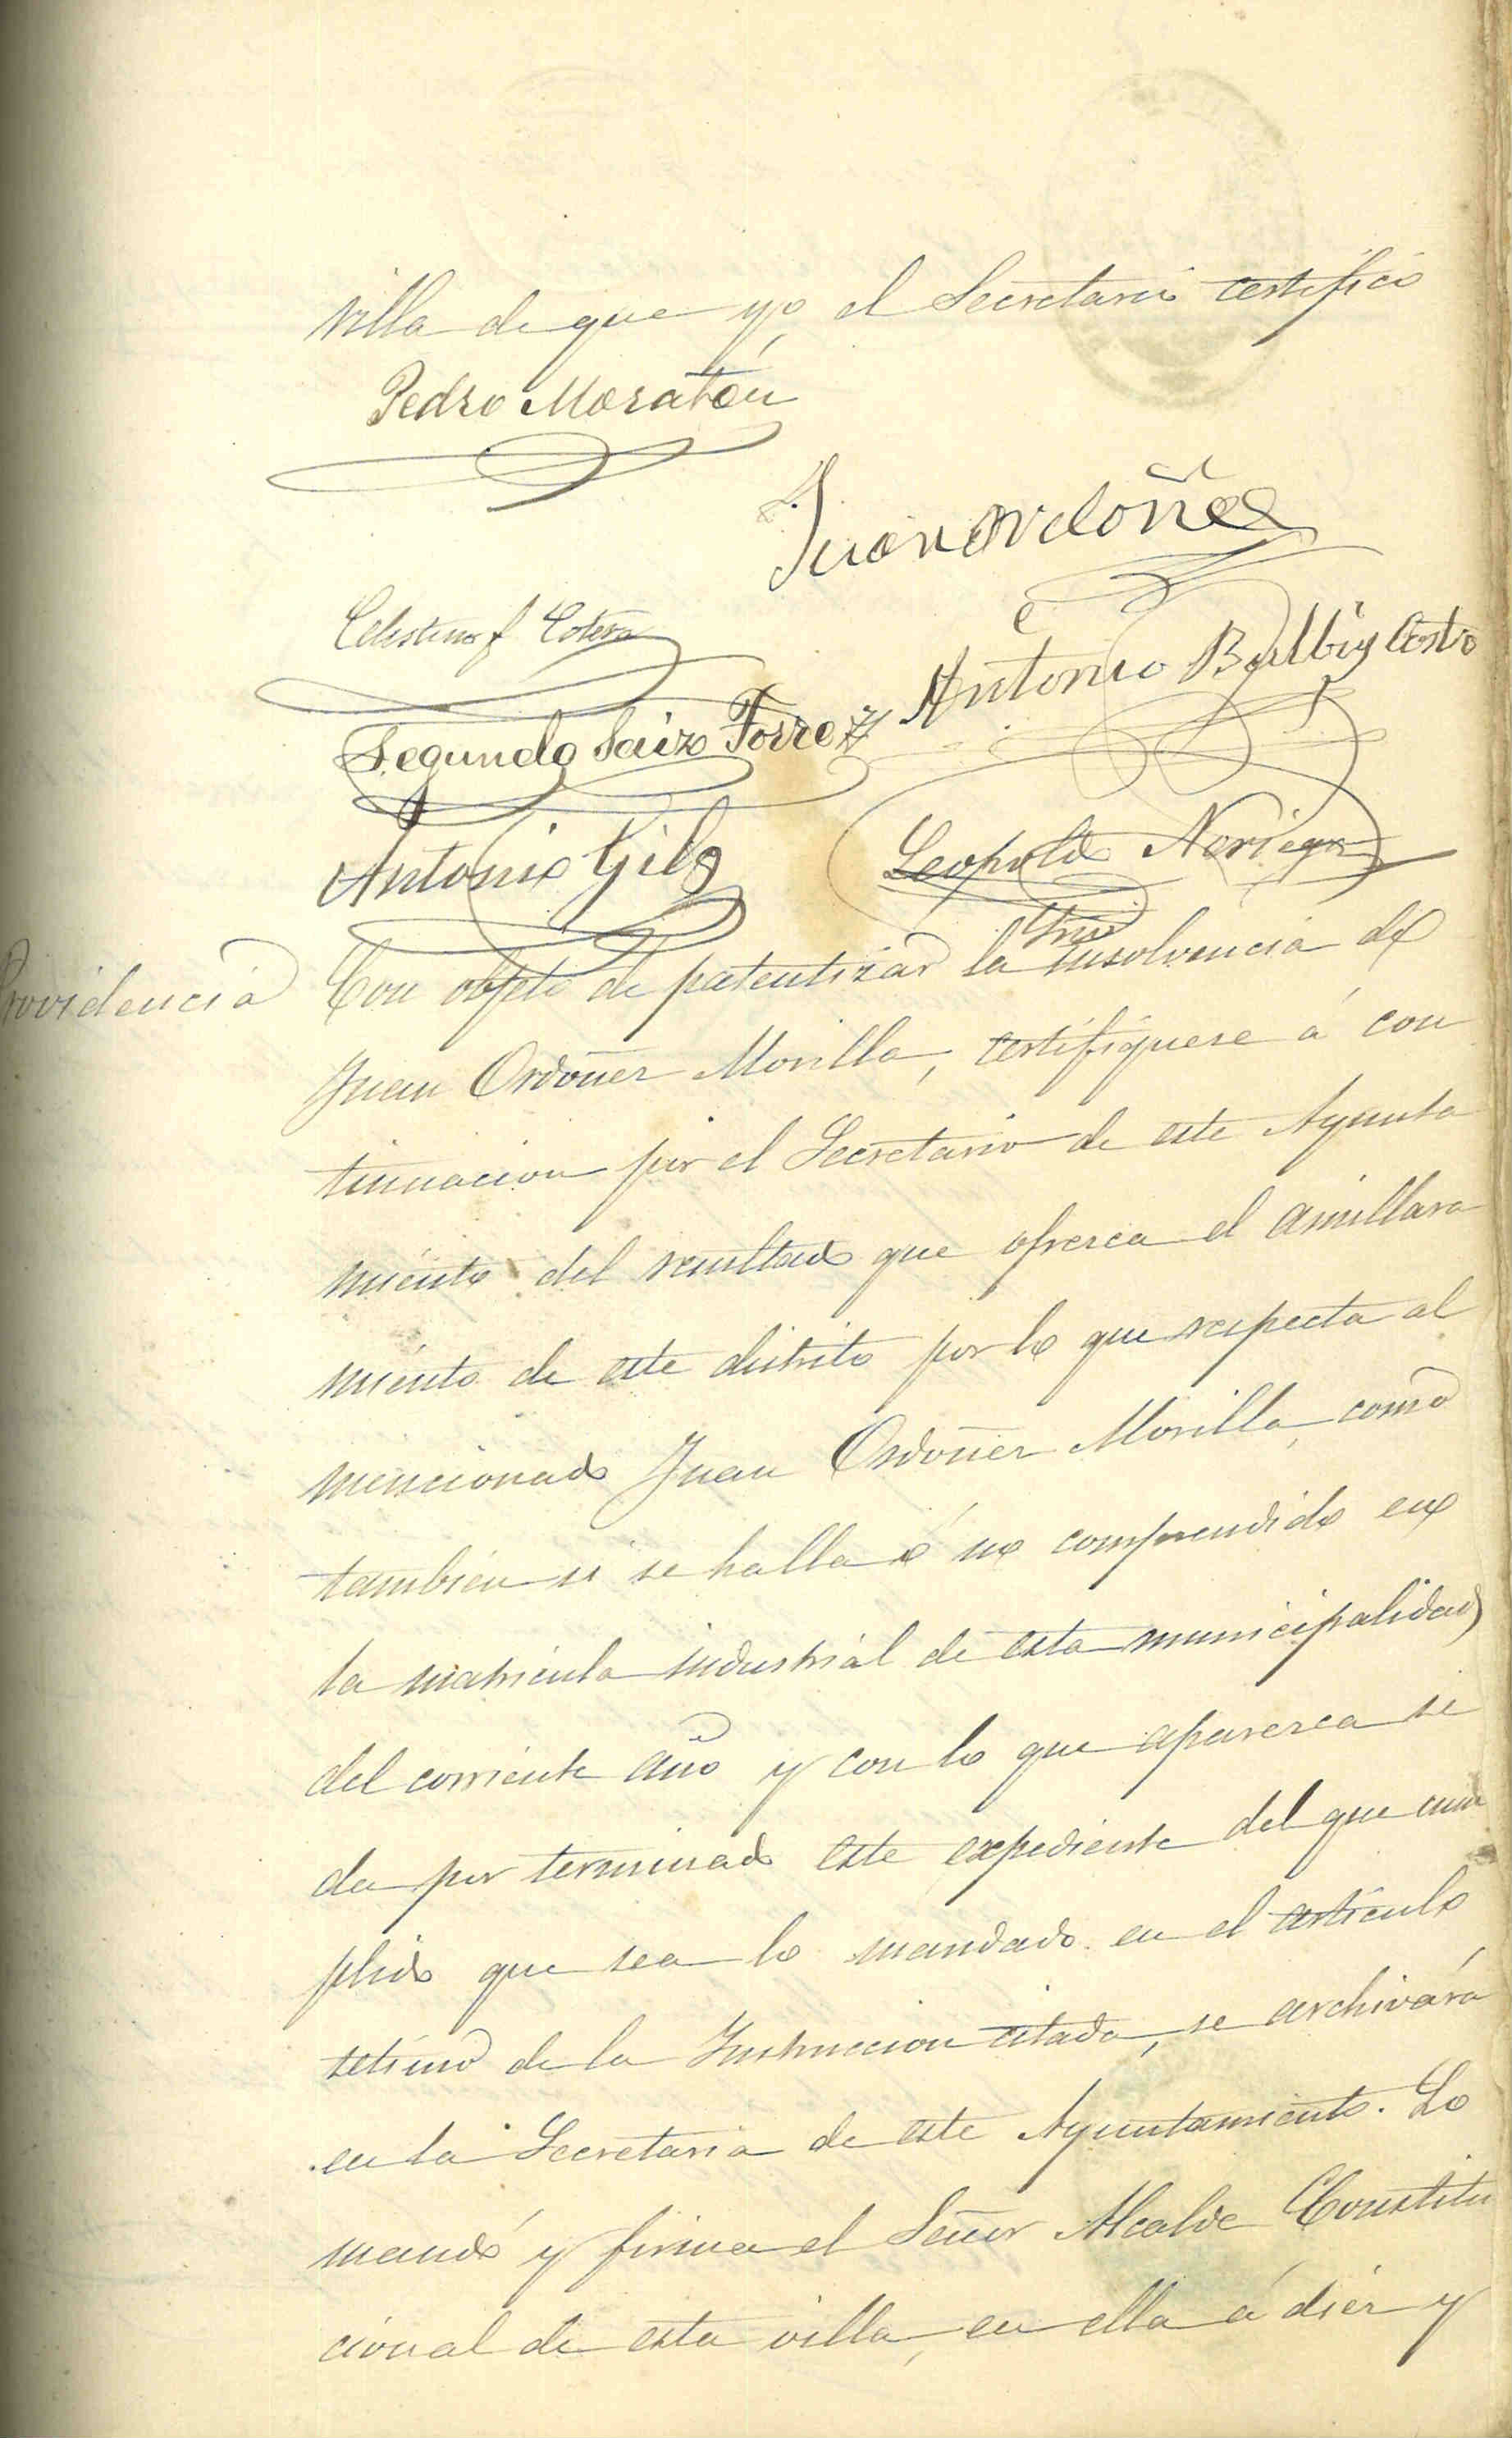 villa de que yo el Secretario certifico
Pedro Moratón
Juan Ordoñez
Celestino f Cotera
Antonio Balbis Castro
Segundo Saiz Torre
Antonio Gil
Leopoldo Noriega
Srio
Providencia
Con objeto de patentizar la insolvencia de
Juan Ordoñez Morilla, certifiquese á con
tinuacion por el Secretario de este Ayunta
miento del resultado que ofrezca el amillara
miento de este distrito por lo que respecta al
mencionado Juan Ordoñez Morilla, como
también si se halla ó no comprendido en
la matricula industrial de esta municipalidad
del corriente año y con lo que aparezca se
da por terminado este expediente del que cum
plido que sea lo mandado en el artículo
sétimo de la Instruccion citada, se archivará
en la Secretaria de este Ayuntamiento. Lo
mandó y firma el Señor Alcalde Constitu
cional de esta villa, en ella á diez y